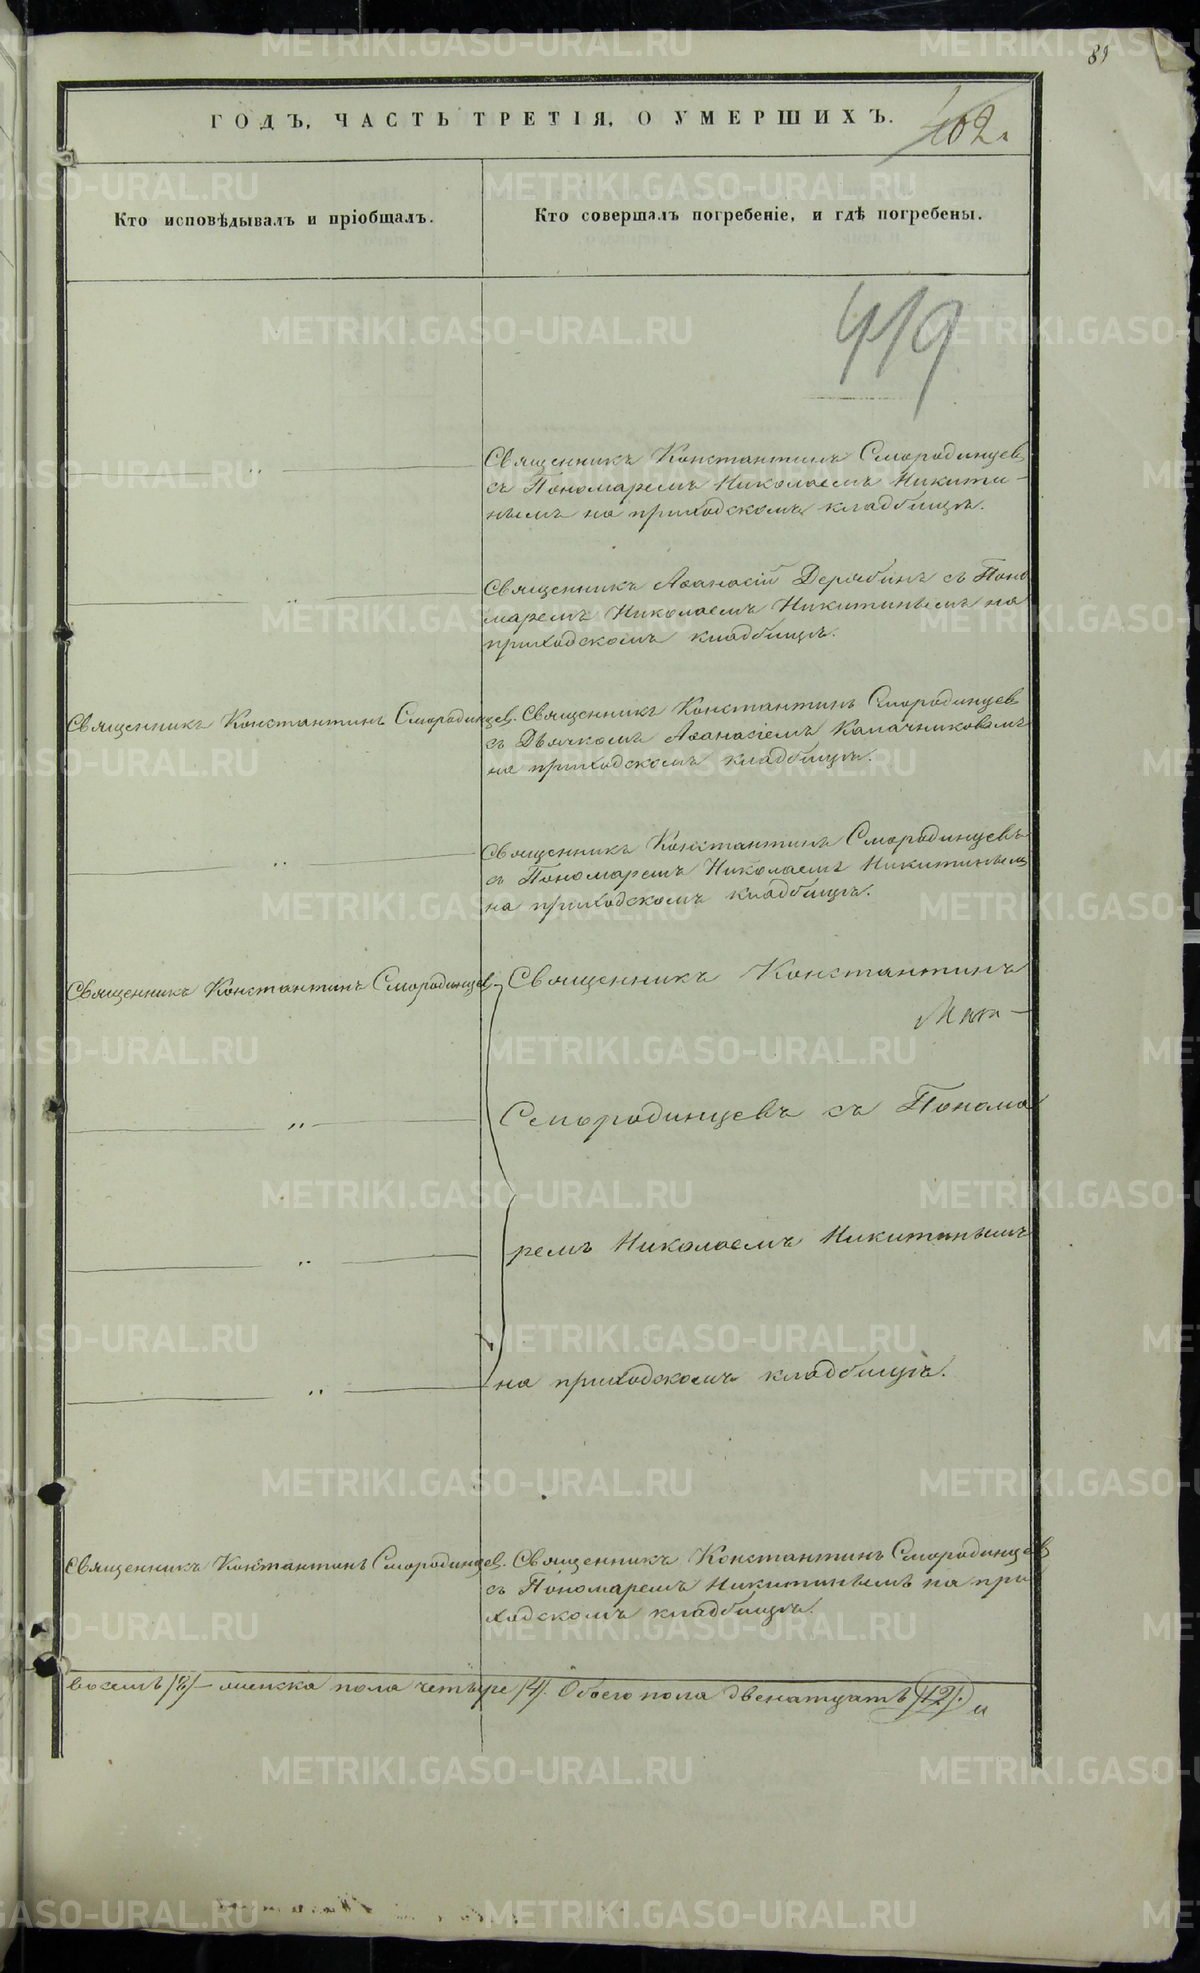 89
ГОДЪ, ЧАСТЬ ТРЕТІЯ, О УМЕРШИХЪ.
102.
Кто исповѣдывалъ и пріобщалъ.
Кто совершалъ погребеніе, и гдѣ погребены.
419
Священникъ Константинъ Смородинцев
съ Пономаремъ Николаемъ Никити-
нымъ на приходскомъ кладбищѣ.
Священникъ Аѳанасій Дерябинъ съ Поно
маремъ Николаемъ Никитинымъ на
приходскомъ кладбищѣ.
Священникъ Константинъ Смородинцев.
Священникъ Константинъ Смородинцев
съ Дьячкомъ Аѳанасіемъ Калачниковымъ
на приходскомъ кладбищѣ.
Священникъ Константинъ Смородинцевъ
съ Пономаремъ Николаемъ Никитиным
на приходскомъ кладбищѣ.
Священникъ Константинъ Смородинцев.
Священникъ Константинъ
Смородинцевъ съ Понома
ремъ Николаемъ Никитинымъ
на приходскомъ кладбищѣ.
Священникъ Константинъ Смородинцев.
Священникъ Константинъ Смородинцев
съ Пономаремъ Никитинымъ на при
ходскомъ кладбищѣ.
восемь /8/ – женска пола четыре /4/. Обоего пола двенатцать /12/. и
METRIKI.GASO-URAL.RU